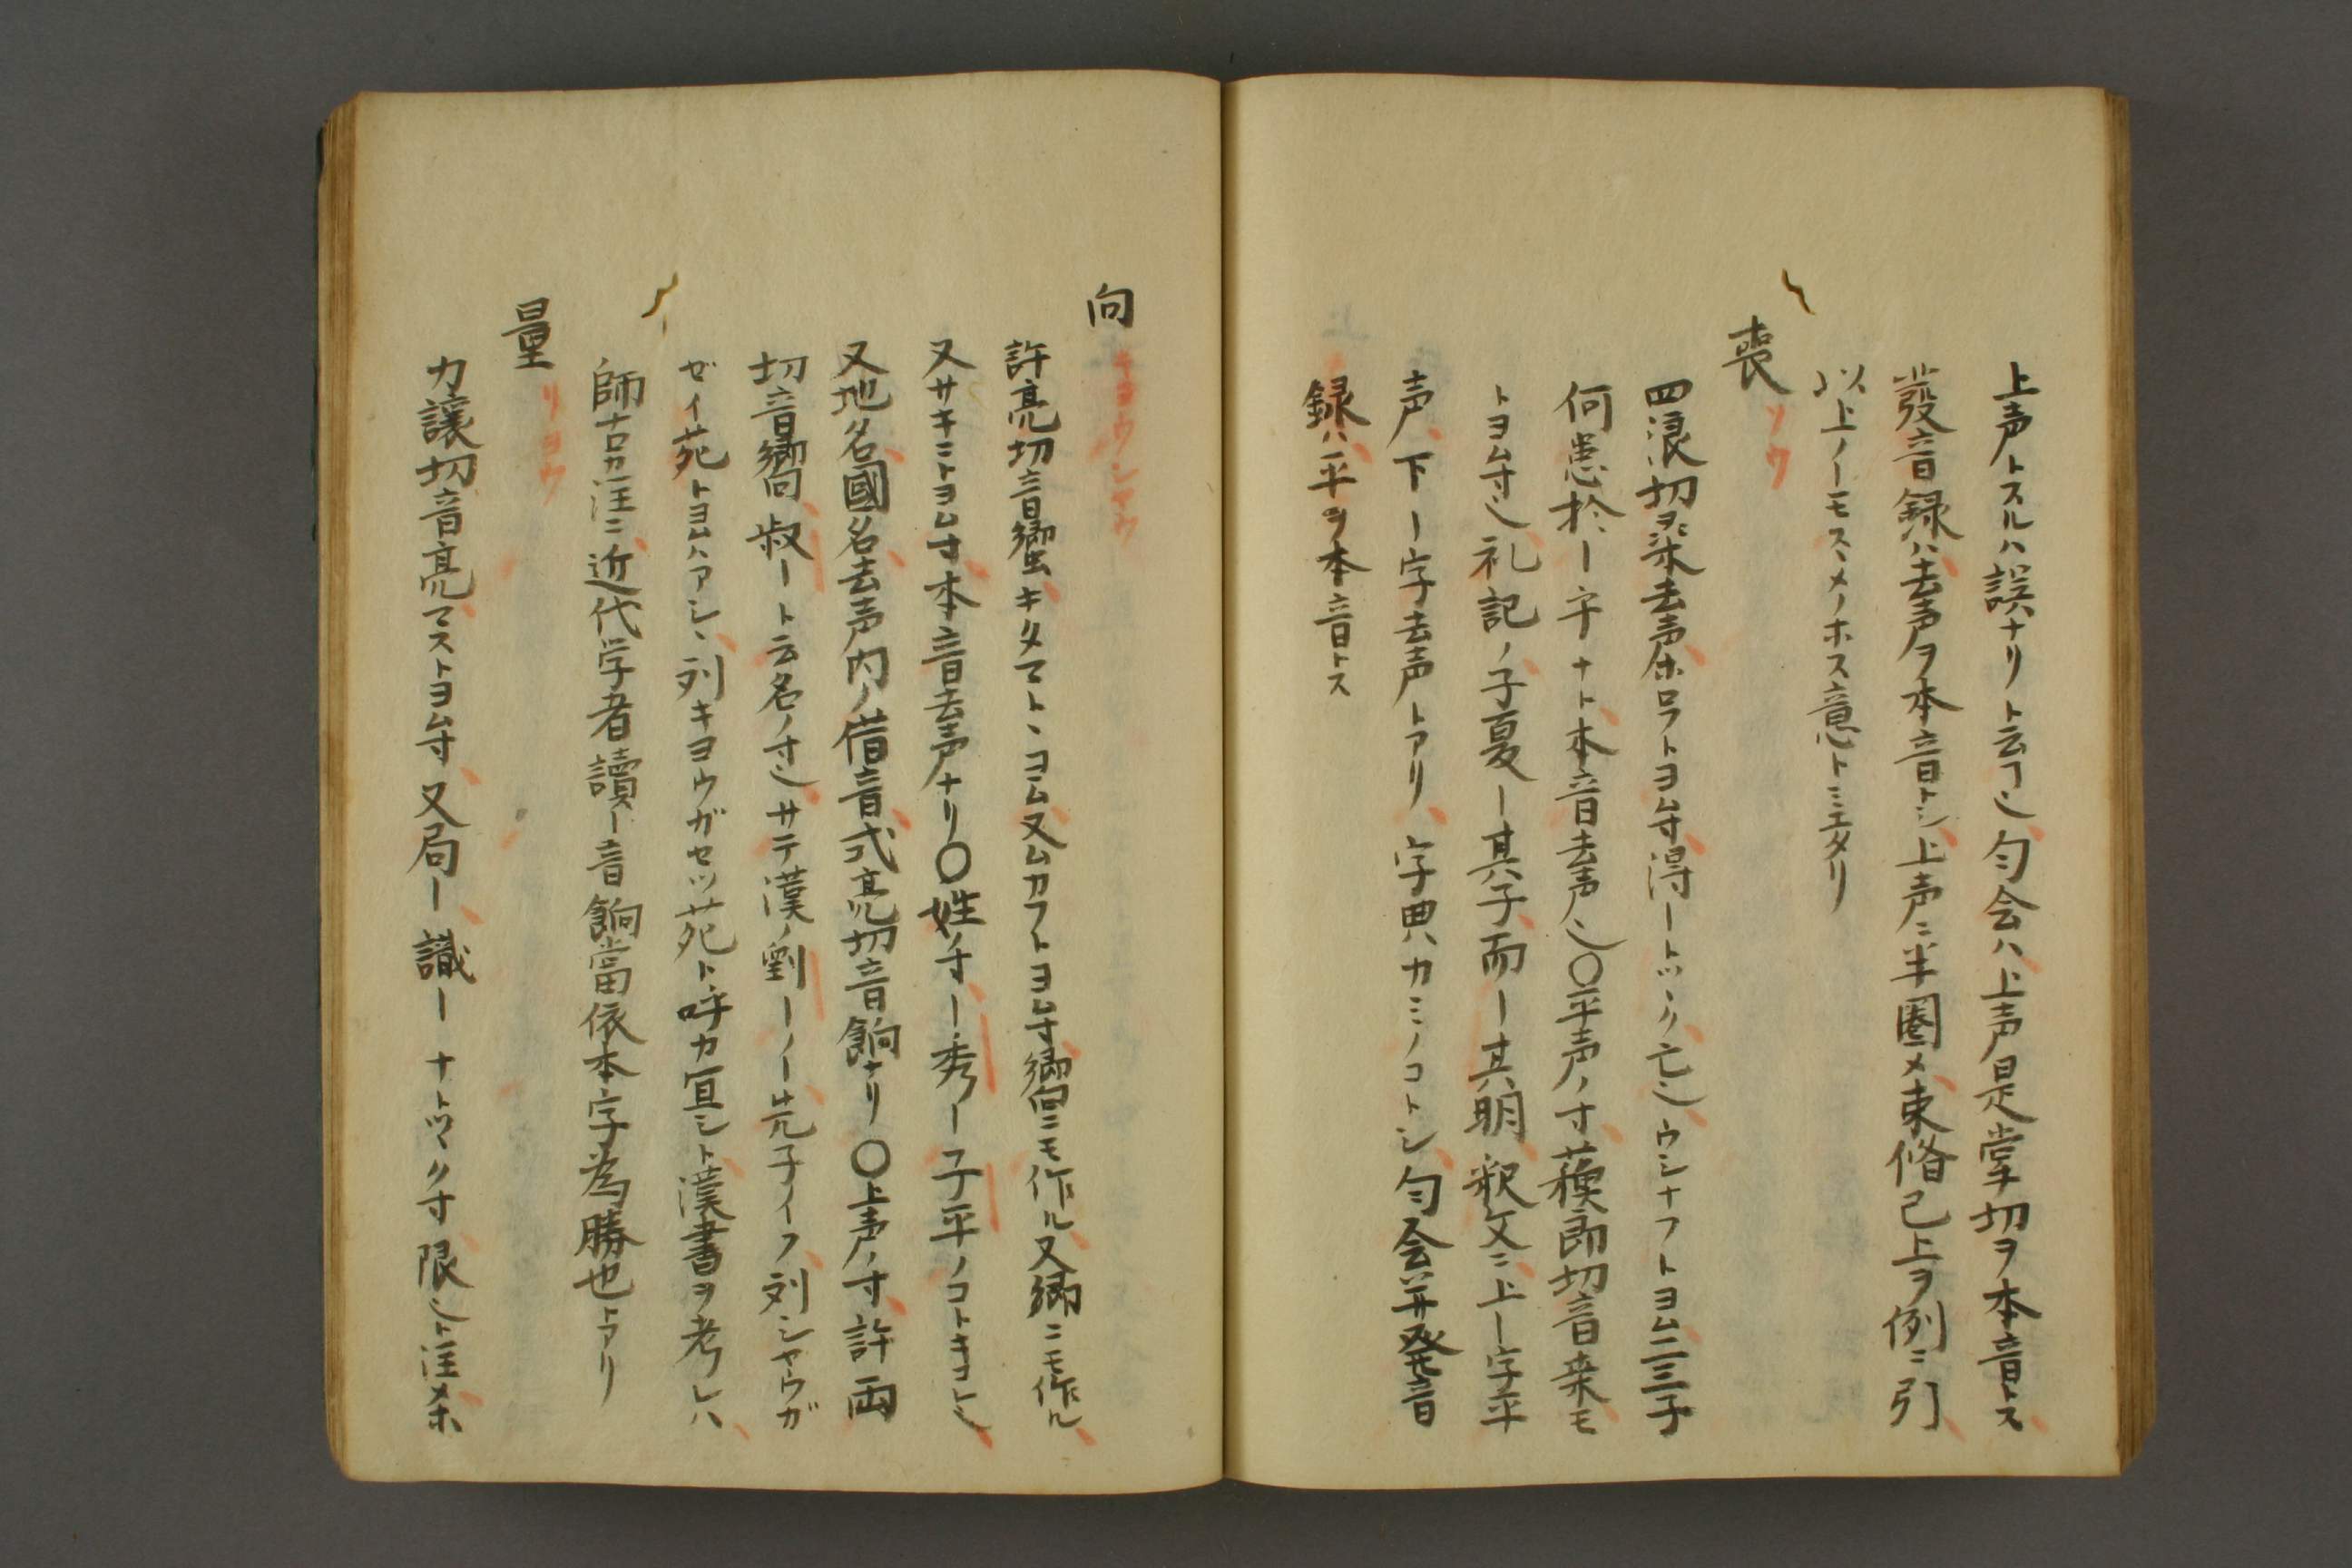 上声トスルハ誤ナリト云フ匂会ハ上声是掌切ヲ本音トス
發音録ハ去声ヲ本音トシ上声ニ半圏メ束脩已上ヲ例ニ引
以上ノーモスヽメノホス意トミエタリ
喪 ソウ
四浪切ヲ染去声ホロフトヨム寸得ートツヽク亡シウシナフトヨム二三子
何患於ー乎ナト本音去声シ〇平声ノ寸蘓郎切音桒モ
トヨム寸シ礼記ノ子夏ー其子而ー其明釈文ニ上ー字平
声下ー字去声トアリ字典ハカミノコトシ匂会并発音
録ハ平ヲ本音トス
向 キヨウシヤウ
許亮切音蠁キタマトヽヨム又ムカフトヨム寸嚮ニモ作ル又鄕ニモ作ル
又サキニトヨム寸本音去声ナリ〇姓ノ寸ー秀ー子平ノコトキヨシ
又地名國名去声内ノ借音式亮切音餉ナリ〇上声ノ寸許両
切音嚮叔ート云名ノ寸シサテ漢ノ劉ーノー先子イフ列シヤウガ
ゼイ苑トヨムハアシヽ列キヨウガセツ苑ト呼カ冝シト漢書ヲ考レハ
師古カ注ニ近代学者讀ー音餉當依本字為勝也トアリ
量 リヨウ
力讓切音亮マストヨム寸又局ー識ーナトツヽク寸限シト注メホ